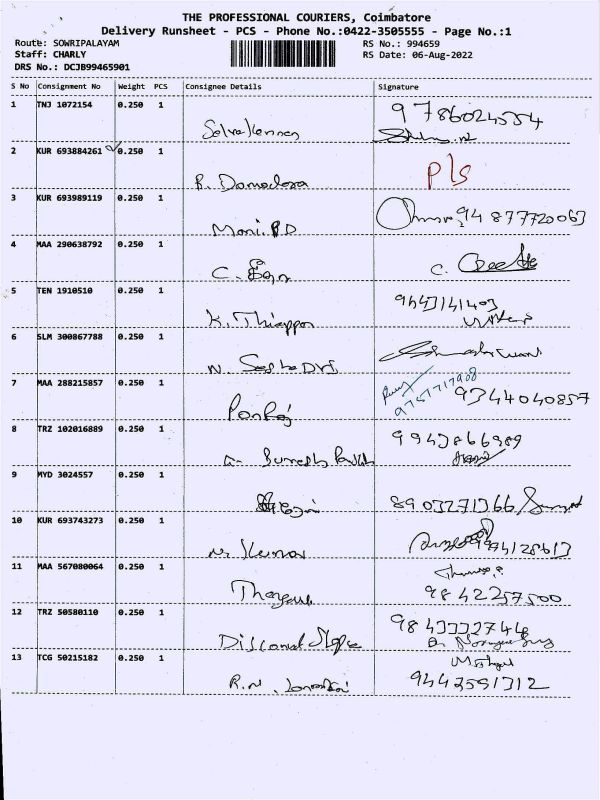 THE PROFESSIONAL COURIERS, Coimbatore
Delivery Runsheet - PCS - Phone No.:0422-3505555 - Page No.:1
Route: SOWRIPALAYAM
Staff: CHARLY
DRS No.: DCJB99465901
RS No.: 994659
RS Date: 06-Aug-2022
S No Consignment No Weight PCS Consignee Details Signature
1 TNJ 1072154 0.250 1 9786024554
2 KUR 693884261 0.250 1 B. Damodara Pls
3 KUR 693989119 0.250 1 Mani. BD 94877720063
4 MAA 290638792 0.250 1 C. C.
5 TEN 1910510 0.250 1 K. Thiappan
6 SLM 300867788 0.250 1 N.
7 MAA 288215857 0.250 1 Pankaj 9344040857
8 TRZ 102016889 0.250 1 9943866989
9 MYD 3024557 0.250 1 8903271366
10 KUR 693743273 0.250 1 N. Kumar 9994128613
11 MAA 567080064 0.250 1 9842257500
12 TRZ 50580110 0.250 1 Discount 9843332746
13 TCG 50215182 0.250 1 R.N. 9442591312